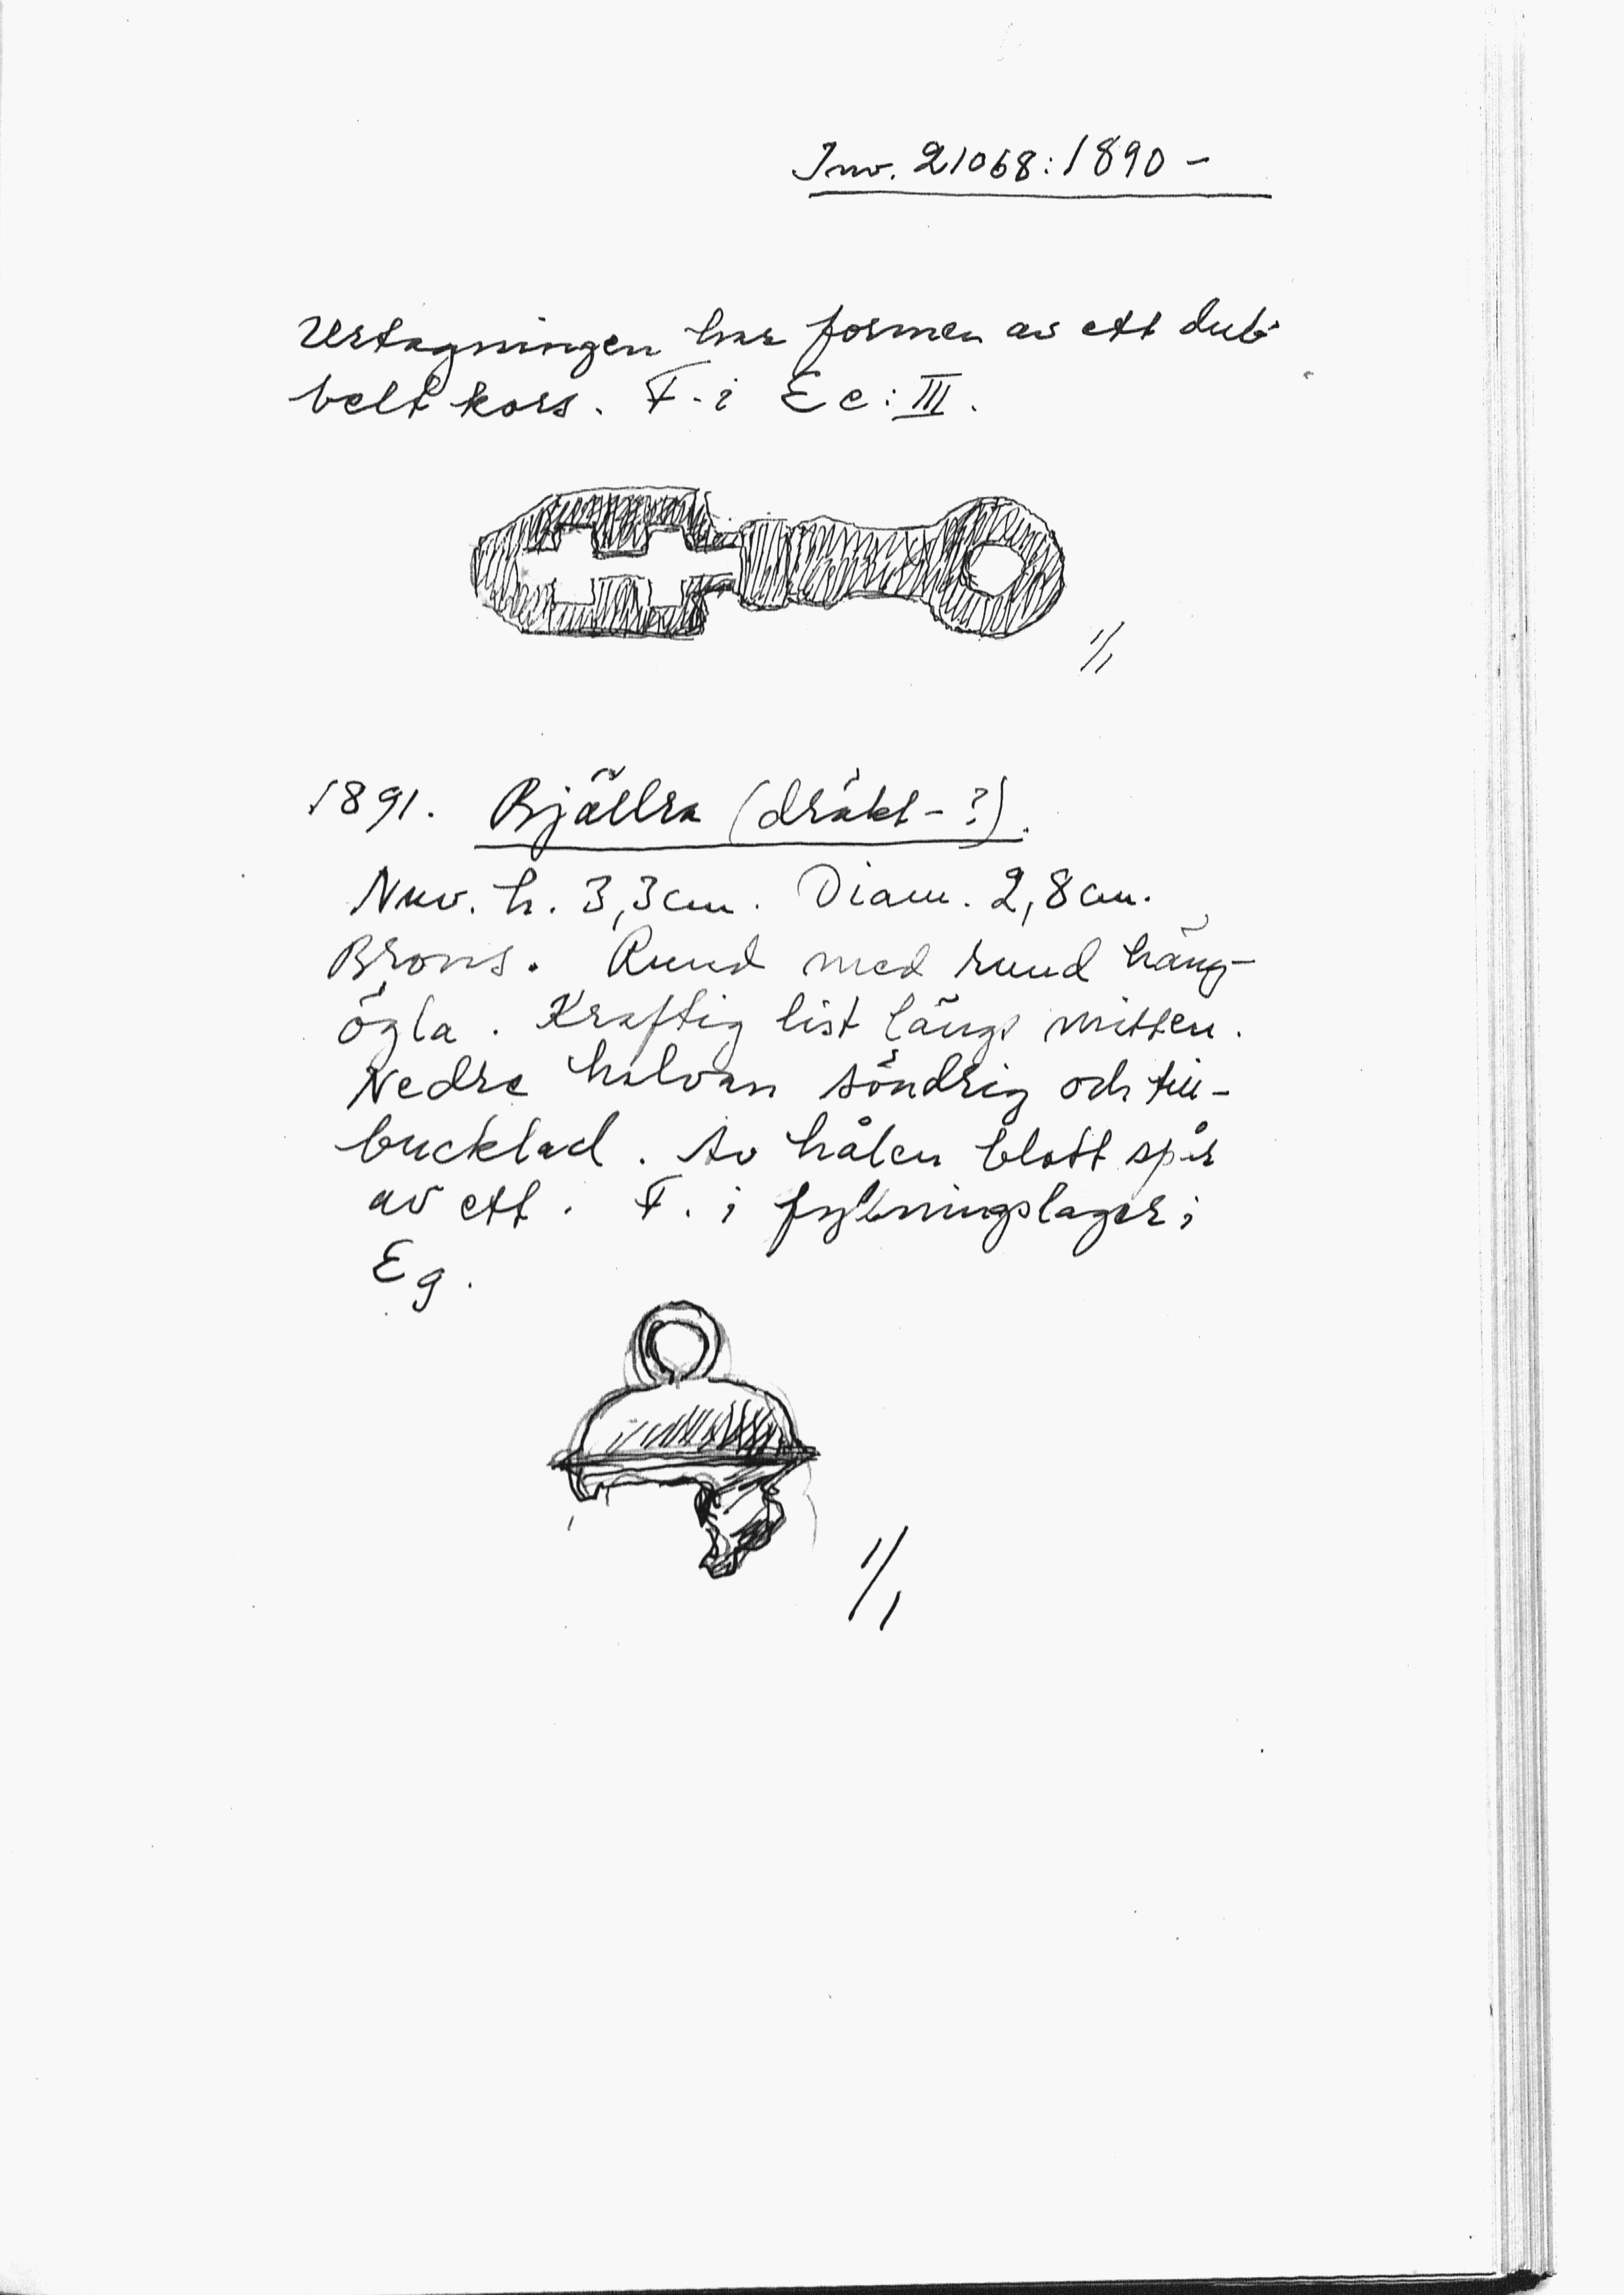 Inv. 21068:1890 –
Urtagningen har formen av ett dub-
belt kors. F. i Ec: III.
1/1
1891. Bjällra (dräkt-?).
Nuv. h. 3,3 cm. Diam. 2,8 cm.
Brons. Rund med rund häng-
ögla. Kraftig list längs mitten.
Nedre halvan söndrig och till-
bucklad. Av hålen blott spår
av ett. F. i fyllningslager i
Eg.
1/1